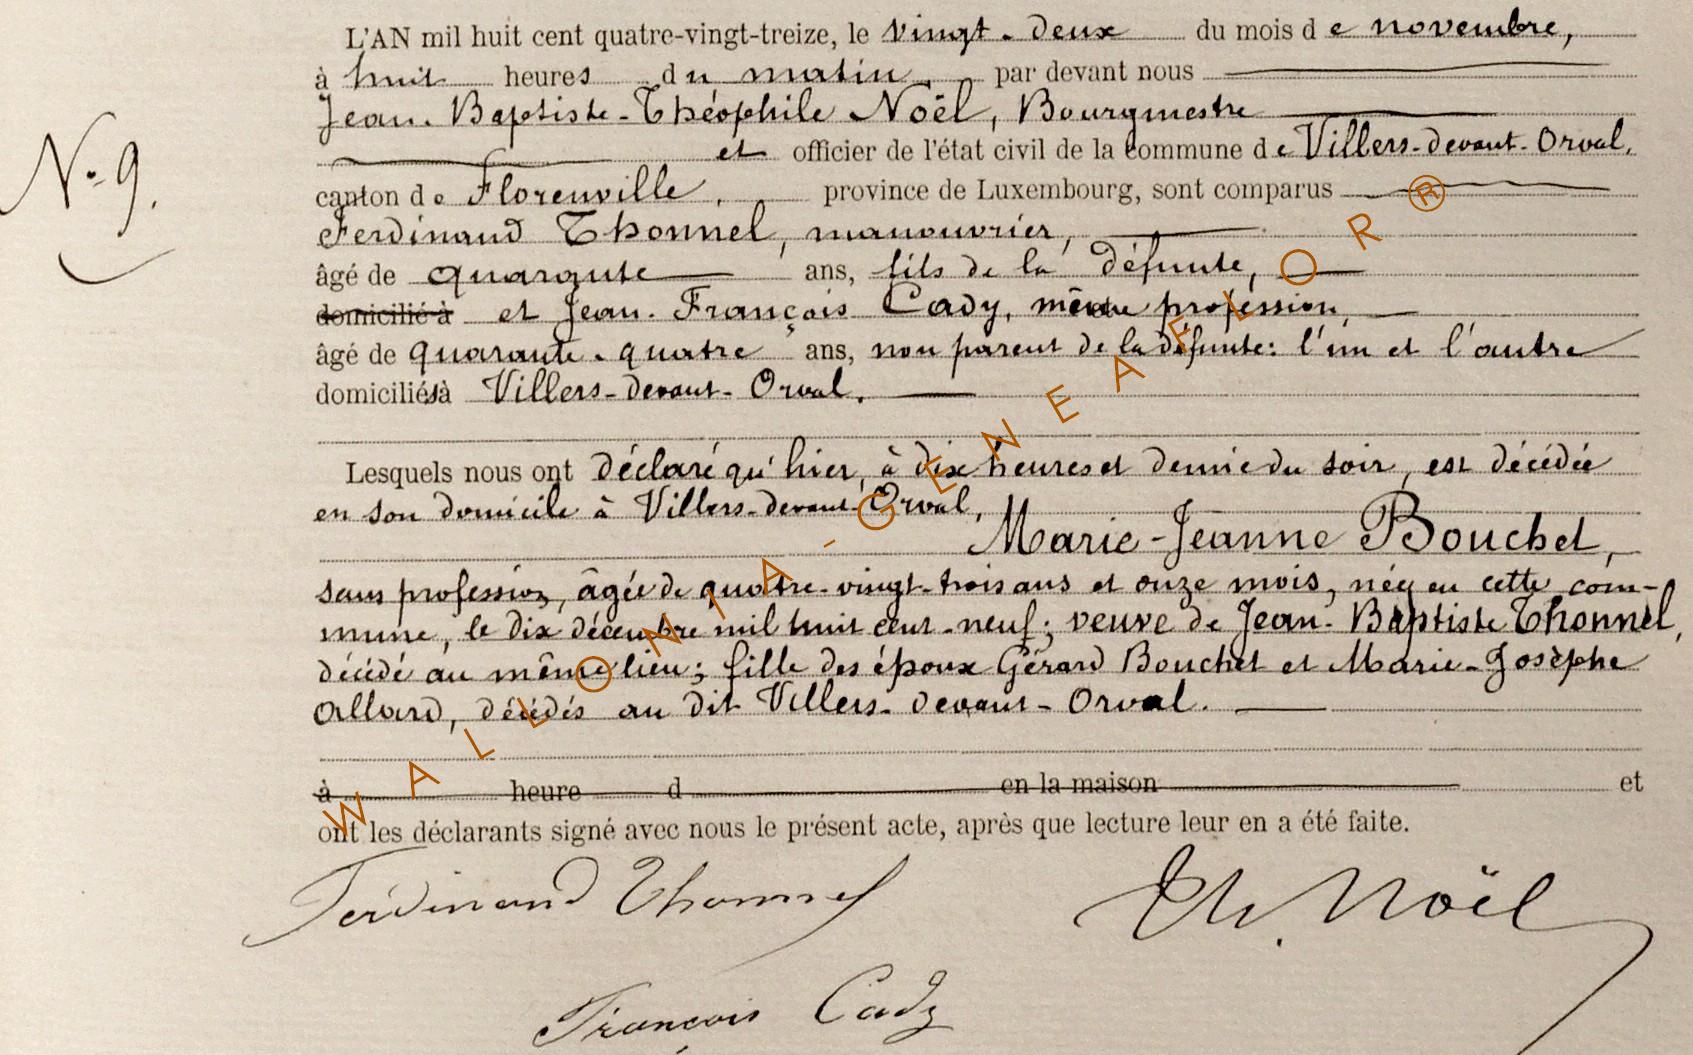 L'AN mil huit cent quatre-vingt-treize, le vingt-deux du mois de novembre,
à huit heures du matin, par devant nous
Jean-Baptiste-Théophile Noël, Bourgmestre
et officier de l'état civil de la commune de Villers-devant-Orval,
N° 9.
canton de Florenville, province de Luxembourg, sont comparus
Ferdinand Thonnel, manouvrier,
âgé de quarante ans, fils de la défunte,
domicilié à et Jean-François Cady, même profession,
âgé de quarante-quatre ans, non parent de la défunte: l'un et l'autre
domiciliés à Villers-devant-Orval.
Lesquels nous ont déclaré qu'hier, à dix heures et demie du soir, est décédée
en son domicile à Villers-devant-Orval,
Marie-Jeanne Bouchet,
sans profession, âgée de quatre-vingt-trois ans et onze mois, née en cette com-
mune, le dix décembre mil huit cent-neuf; veuve de Jean-Baptiste Thonnel,
décédé au même lieu; fille des époux Gérard Bouchet et Marie-Josèphe
Allard, décédés au dit Villers-devant-Orval.
à heure d en la maison et
ont les déclarants signé avec nous le présent acte, après que lecture leur en a été faite.
Ferdinand Thonnel Th. Noël
François Cady
WALLONIA-GENEAFLOR®